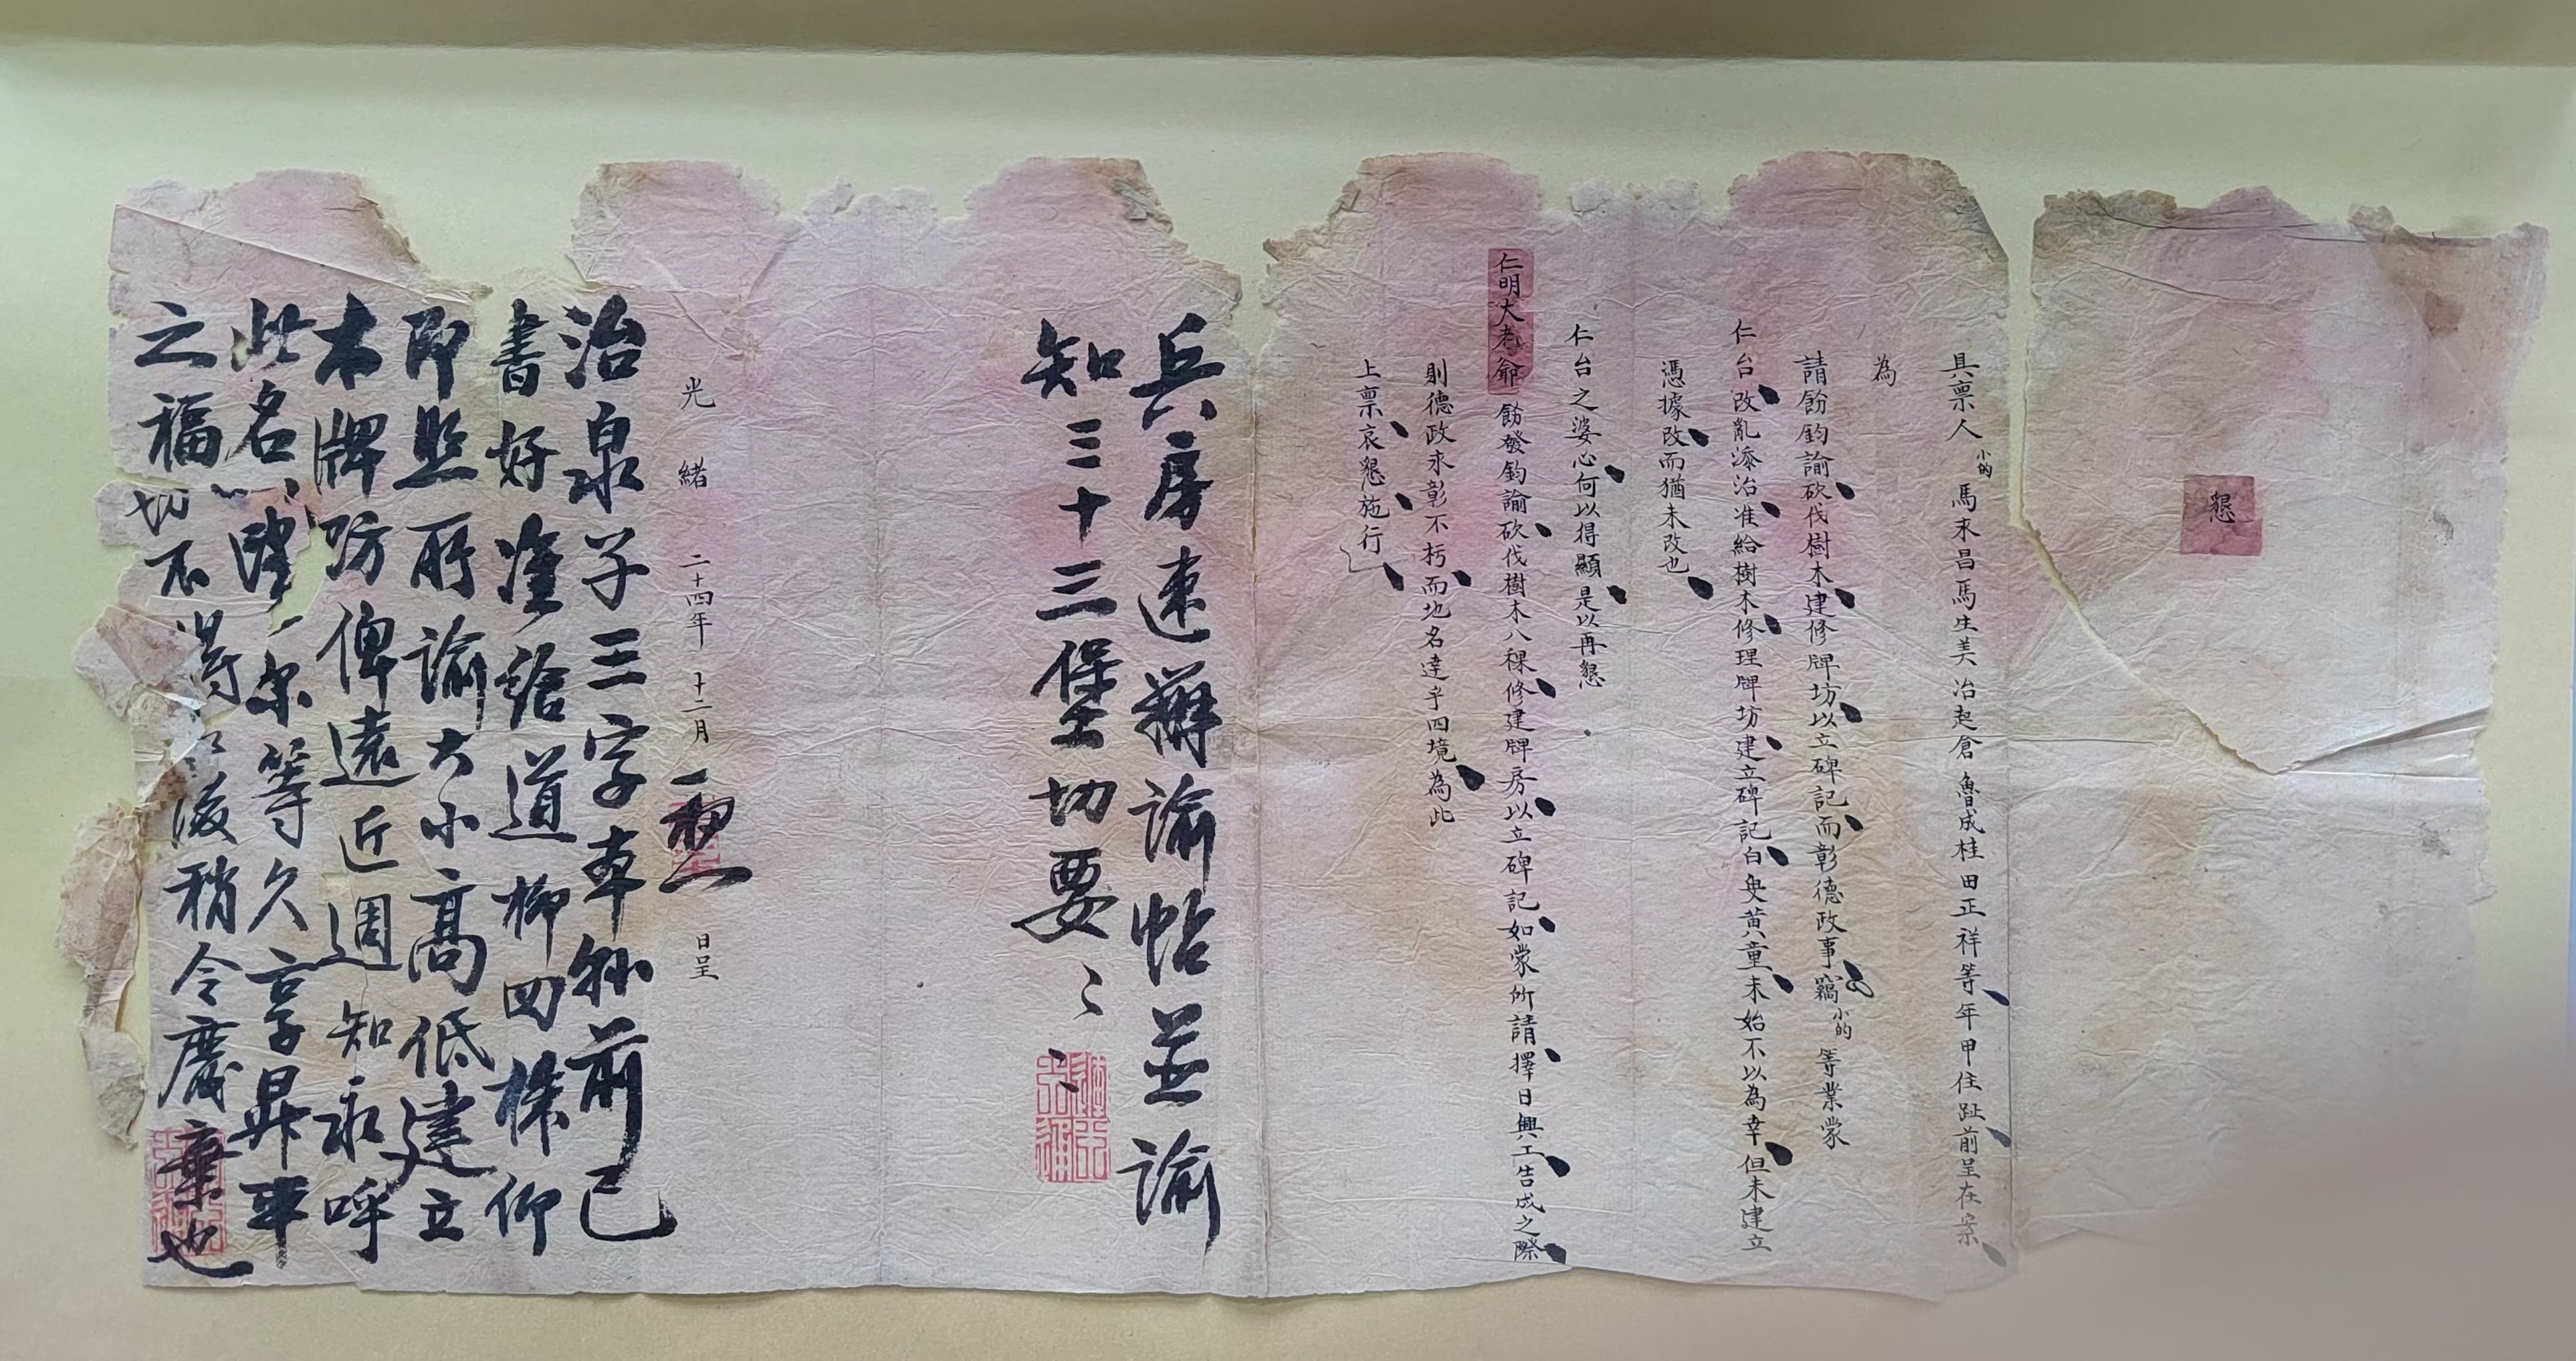 懇
具禀人小的馬來昌馬生美冶起倉魯成桂田正祥等年甲住趾前呈在宗
為
請飭鈞諭砍伐樹木建修牌坊以立碑記而彰德政事竊小的等業蒙
仁台改亂添治准給樹木修理牌坊建立碑記白叟黃童未始不以為幸但未建立
憑據改而猶未改也
仁台之婆心何以得顯是以再懇
仁明大老爺飭發鈞諭砍伐樹木八稞修建牌房以立碑記如蒙所請擇日興工告成之際
則德政永彰不朽而地名達乎四境為此
上禀哀懇施行
兵房速辦諭帖並諭
知三十三堡切要
光緒二十四年十二月一日呈
治泉子三字車 前已
書好 給道柳四株仰
即照所諭大小高低建立
木牌坊俾遠近週知永呼
此名 等久享昇平
之福切不得 後稍令廢棄也